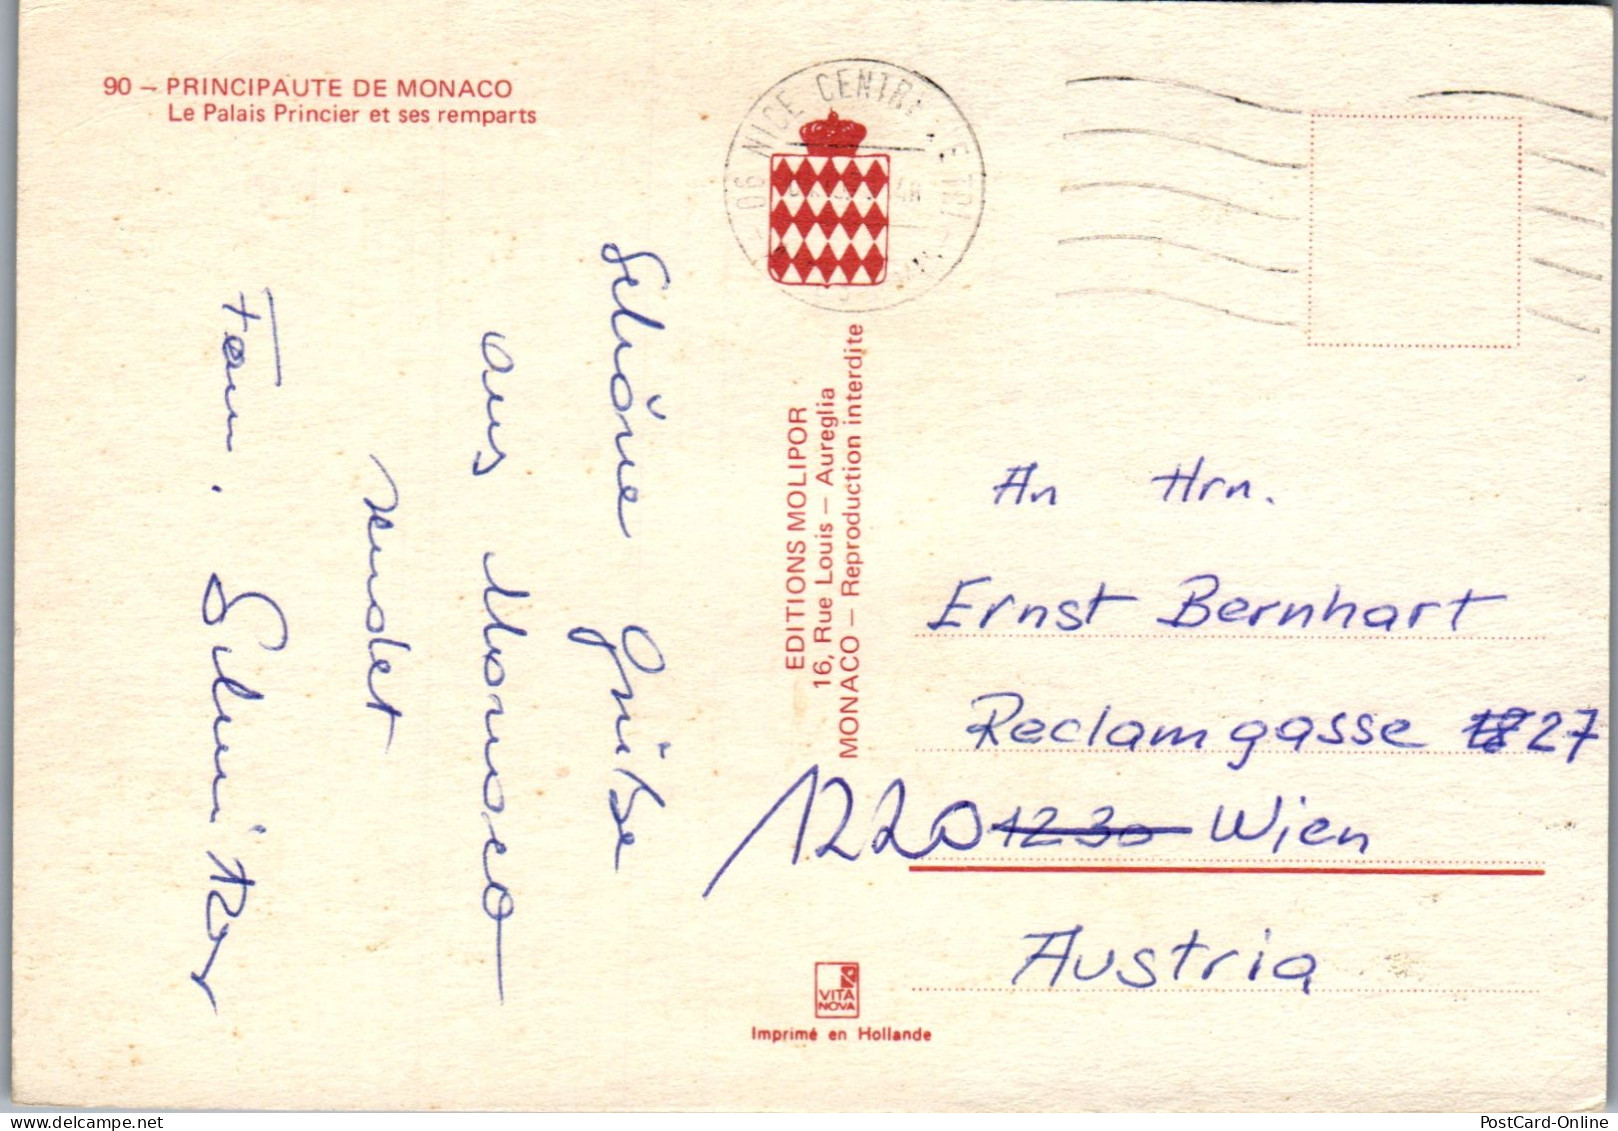 90 – PRINCIPAUTE DE MONACO
Le Palais Princier et ses remparts
06 NICE CENTRE
Schöne Grüße
aus Monaco
sendet
Fam.
EDITIONS MOLIPOR
16, Rue Louis – Aureglia
MONACO – Reproduction interdite
An Hrn.
Ernst Bernhart
Reclamgasse 27
1220 1230 Wien
Austria
VITA
NOVA
Imprimé en Hollande
PostCard-Online